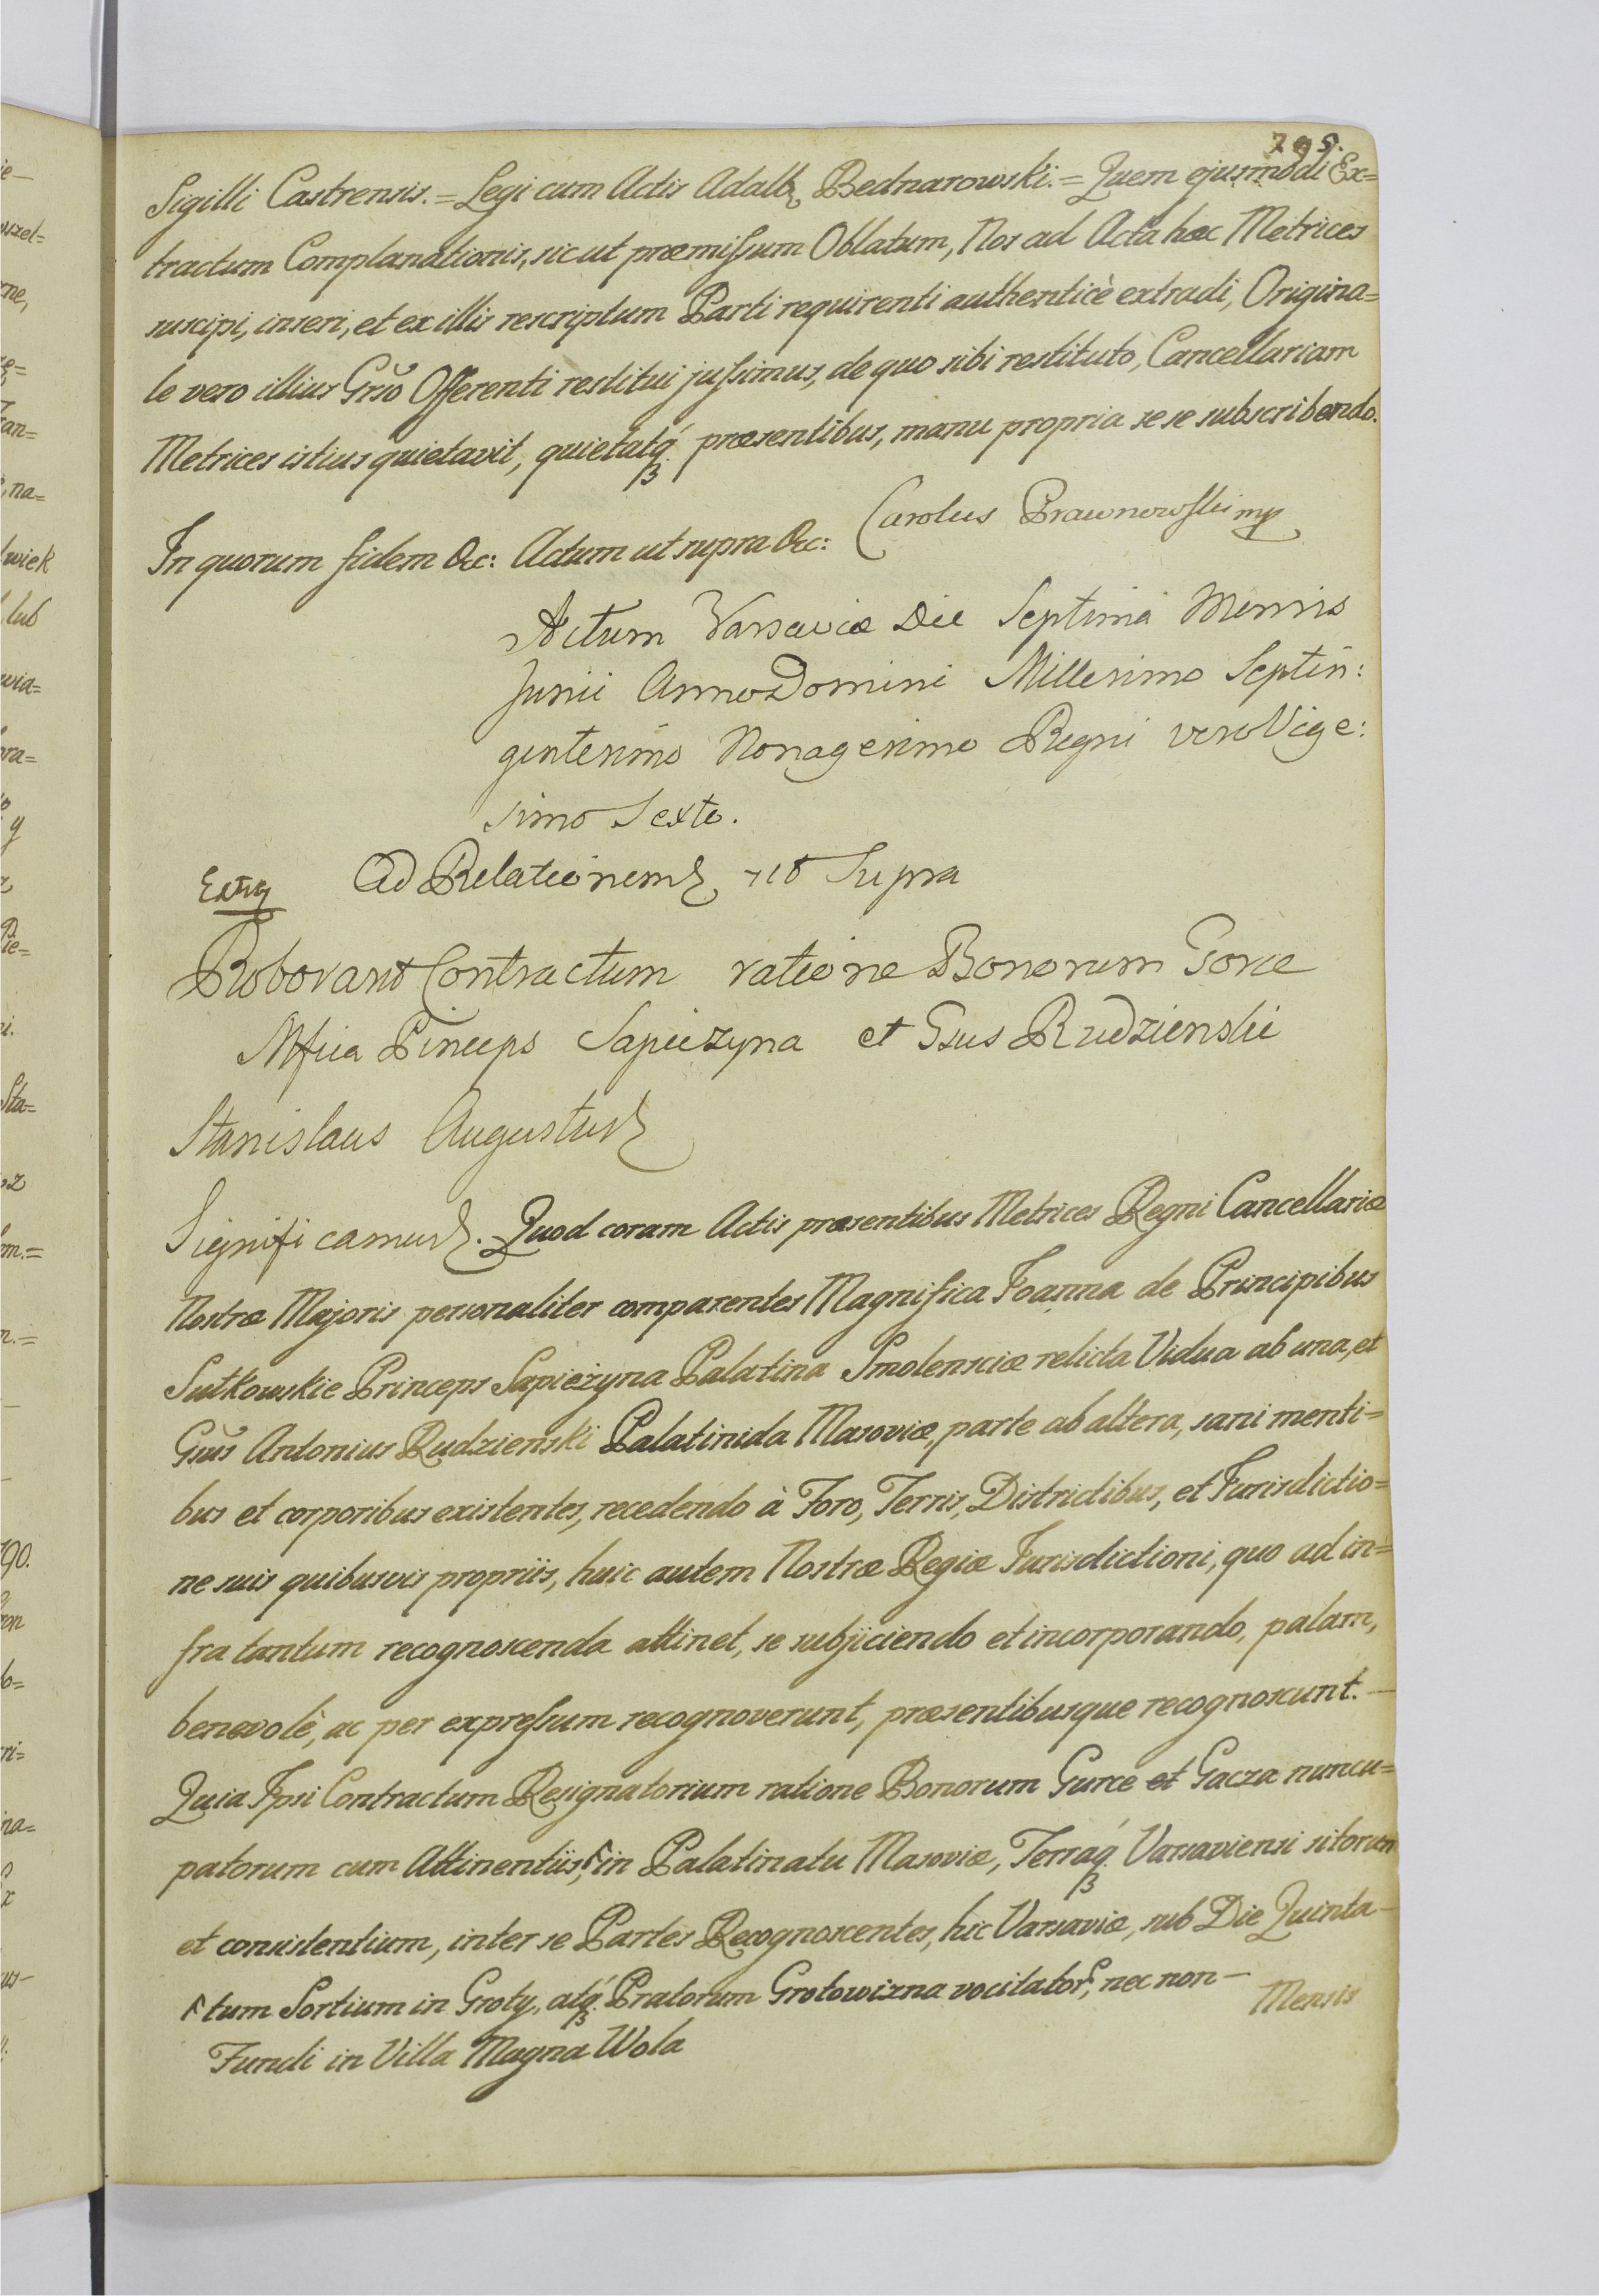 295.
Sigilli Castrensis. = Legi cum Actis Adalb Bednarowski. = Quem ejusmodi Ex=
tractum Complanationis, sicut præmissum Oblatum, Nos ad Acta hæc Metrices
suscipi, inseri, et ex illis rescriptum Parti requirenti authenticè extradi, Origina=
le vero illius Grso Offerenti restitui jussimus, de quo sibi restituto, Cancellariam
Metrices istius quietavit, quietatq præsentibus, manu propria se se subscribendo.
Carolus Prawnowski mp
In quorum fidem &c: Actum ut supra &c:
Actum Varsaviæ Die Septima Mensis
Junii Anno Domini Millesimo Septin:
gentesimo Nonagesimo Regni vero Vige:
simo Sexto.
Ad Relationem ut Supra
Extr
Roborant Contractum ratione Bonorum Gorce
Mfica Princeps Sapiezyna et Gsus Rudzienski
Stanislaus Augustus
Significamus. Quod coram Actis præsentibus Metrices Regni Cancellariæ
Nostræ Majoris personaliter comparentes Magnifica Joanna de Principibus
Sułkowskie Princeps Sapieżyna Palatina Smolensciæ relicta Vidua ab una, et
Gsus Antonius Rudzienski Palatinida Masoviæ, parte ab altera, sani menti=
bus et corporibus existentes, recedendo à Foro, Terris, Districtibus, et Jurisdictio=
ne suis quibusvis propriis, huic autem Nostræ Regiæ Jurisdictioni, quo ad in=
fra tantum recognoscenda attinet, se subjiciendo et incorporando, palam,
benevolè, ac per expressum recognoverunt, præsentibusque recognoscunt. —
Quia Ipsi Contractum Resignatorium ratione Bonorum Gurce et Gacza nuncu=
patorum cum Attinentiis, in Palatinatu Masoviæ, Terráq Varsaviensi sitorum
et consistentium, inter se Partes Recognoscentes, hic Varsaviæ, sub Die Quinta —
tum Sortium in Groty, atq Pratorum Grotowizna vocitator, nec non —
Mensis
Fundi in Villa Magna Wola